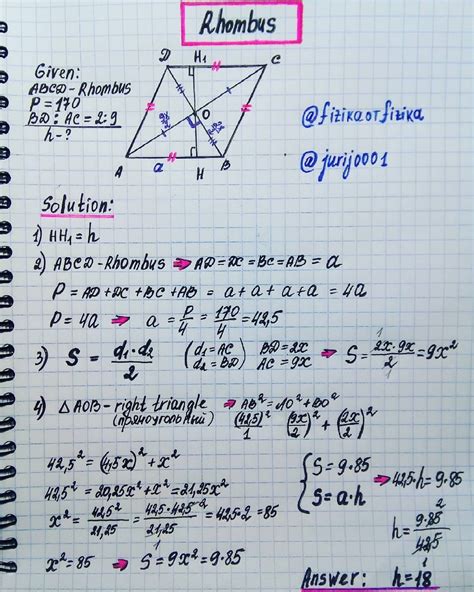 Rhombus
Given:
ABCD-Rhombus
P = 170
BD : AC = 2:9
h = ?
D H₁ C
O
A a H B
@fizikaотfizika
@jurij0001
Solution:
1) HH₁ = h
2) ABCD-Rhombus ⇒ AD = DC = BC = AB = a
P = AD + DC + BC + AB = a + a + a + a = 4a
P = 4a ⇒ a = P/4 = 170/4 = 42,5
3) S = d₁·d₂/2 (d₁ = AC d₂ = BD) BD = 2x AC = 9x ⇒ S = 2x·9x/2 = 9x²
4) △AOB - right triangle ⇒ AB² = AO² + BO²
(прямоугольный) (42,5)²/1 (9x/2)² + (2x/2)²
42,5² = (4,5x)² + x²
42,5² = 20,25x² + x² = 21,25x²
x² = 42,5²/21,25 = 42,5·42,5²/21,25 = 42,5·2 = 85
x² = 85 ⇒ S = 9x² = 9·85
S = 9·85
S = a·h
⇒ 42,5·h = 9·85
h = 9·85²/42,5
Answer: h = 18